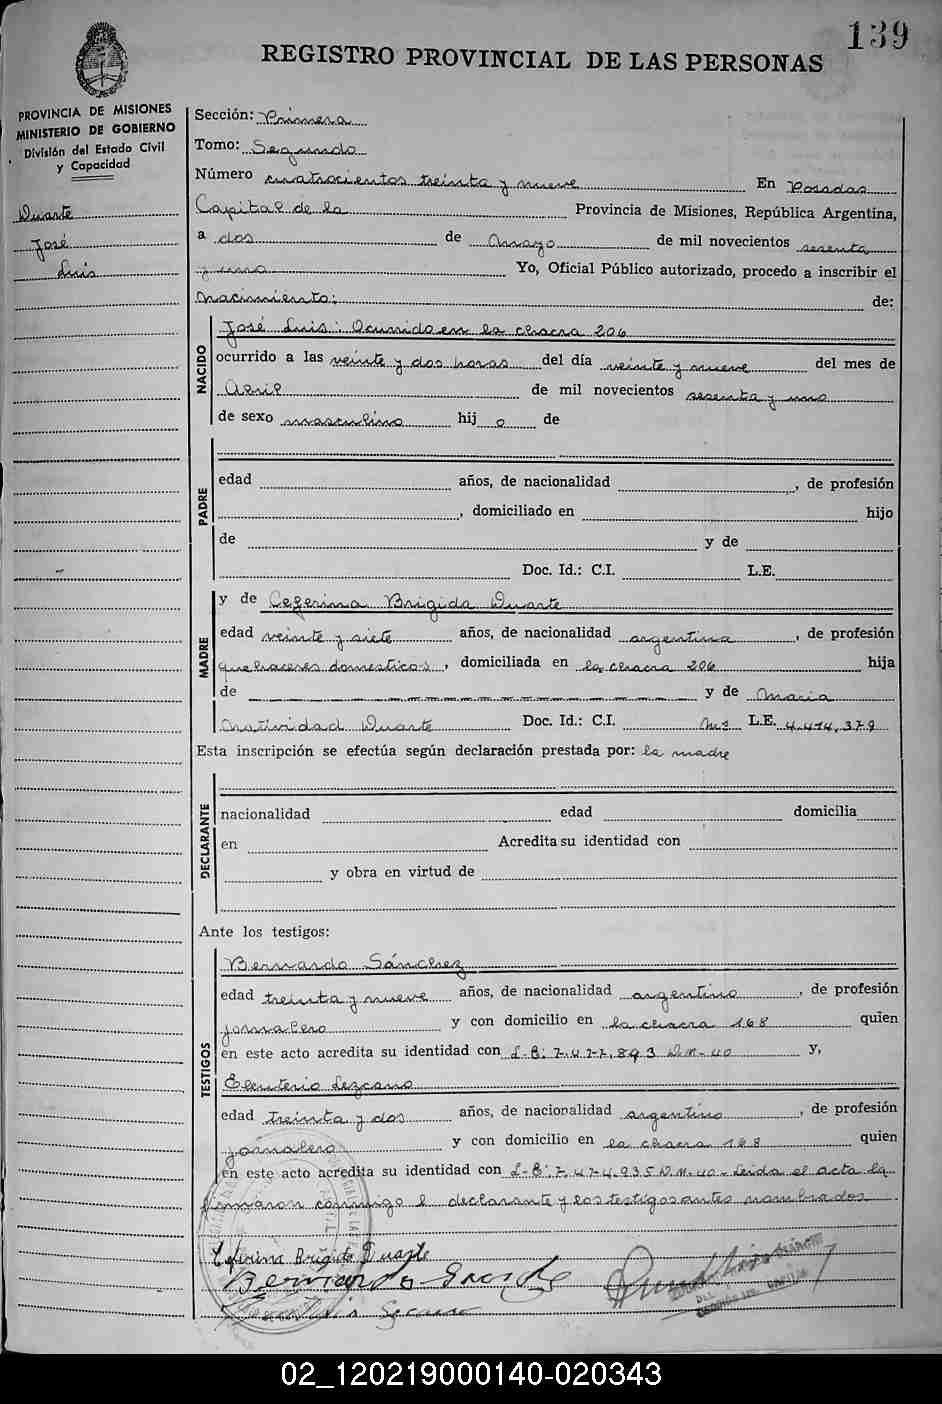 139
REGISTRO PROVINCIAL DE LAS PERSONAS
PROVINCIA DE MISIONES
MINISTERIO DE GOBIERNO
División del Estado Civil
y Capacidad
Duarte
José
Luis
Sección: Primera
Tomo: Segundo
Número cuatrocientos treinta y nueve En Posadas
Capital de la Provincia de Misiones, República Argentina,
a dos de Mayo de mil novecientos sesenta
y uno Yo, Oficial Público autorizado, procedo a inscribir el
nacimiento: de:
NACIDO
José Luis: Ocurrido en la chacra 206
ocurrido a las veinte y dos horas del día veinte y nueve del mes de
Abril de mil novecientos sesenta y uno
de sexo masculino hij o de
PADRE
edad años, de nacionalidad , de profesión
, domiciliado en hijo
de y de
Doc. Id.: C.I. L.E.
MADRE
y de Ceferina Brigida Duarte
edad veinte y siete años, de nacionalidad argentina , de profesión
quehaceres domesticos , domiciliada en la chacra 206 hija
de y de Maria
Natividad Duarte Doc. Id.: C.I. Mis L.E. 4.414.379
Esta inscripción se efectúa según declaración prestada por: la madre
DECLARANTE
nacionalidad edad domicilia
en Acredita su identidad con
y obra en virtud de
Ante los testigos:
TESTIGOS
Bernardo Sánchez
edad treinta y nueve años, de nacionalidad argentino , de profesión
jornalero y con domicilio en la chacra 168 quien
en este acto acredita su identidad con L-E: 7.477.893 D.M-40 y,
Eleuterio Lezcano
edad treinta y dos años, de nacionalidad argentino , de profesión
jornalero y con domicilio en la chacra 168 quien
en este acto acredita su identidad con L-E: 7.474.935 D.M.40- Leida el acta la
firmaron conmigo el declarante y los testigos antes nombrados
Ceferina Brigida Duarte
Bernardo
02_120219000140-020343